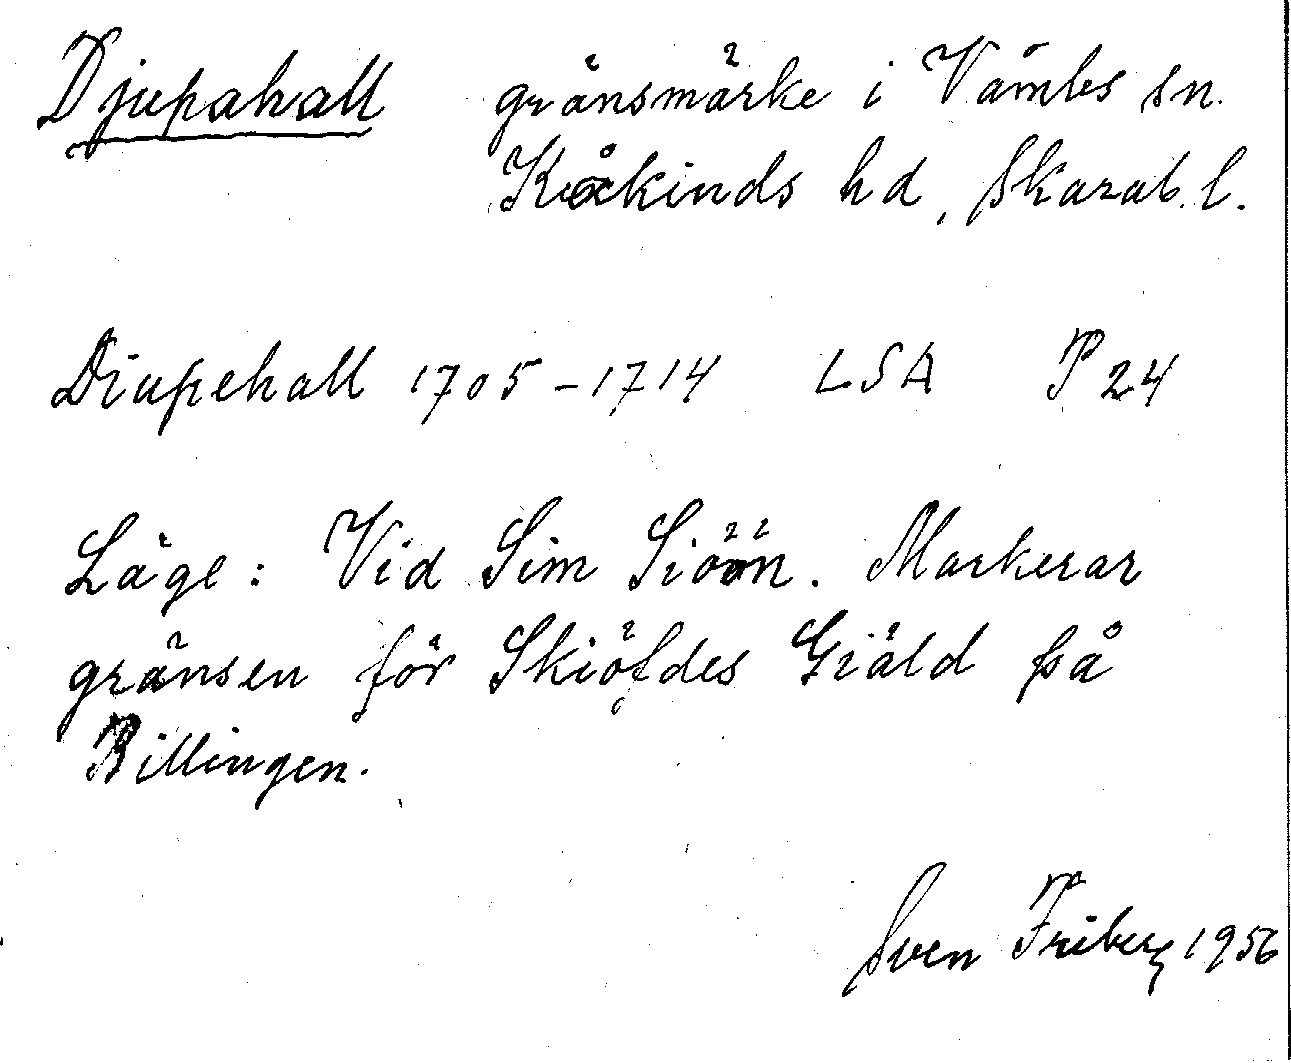 Djupahall gränsmärke i Våmbs sn.
Kåkinds hd, Skarab. l.
Diupehall 1705-1714 LSA P 24
Läge: Vid Sim Siöön. Markerar
gränsen för Skiöfdes Giäld på
Billingen.
Sven Friberg 1956